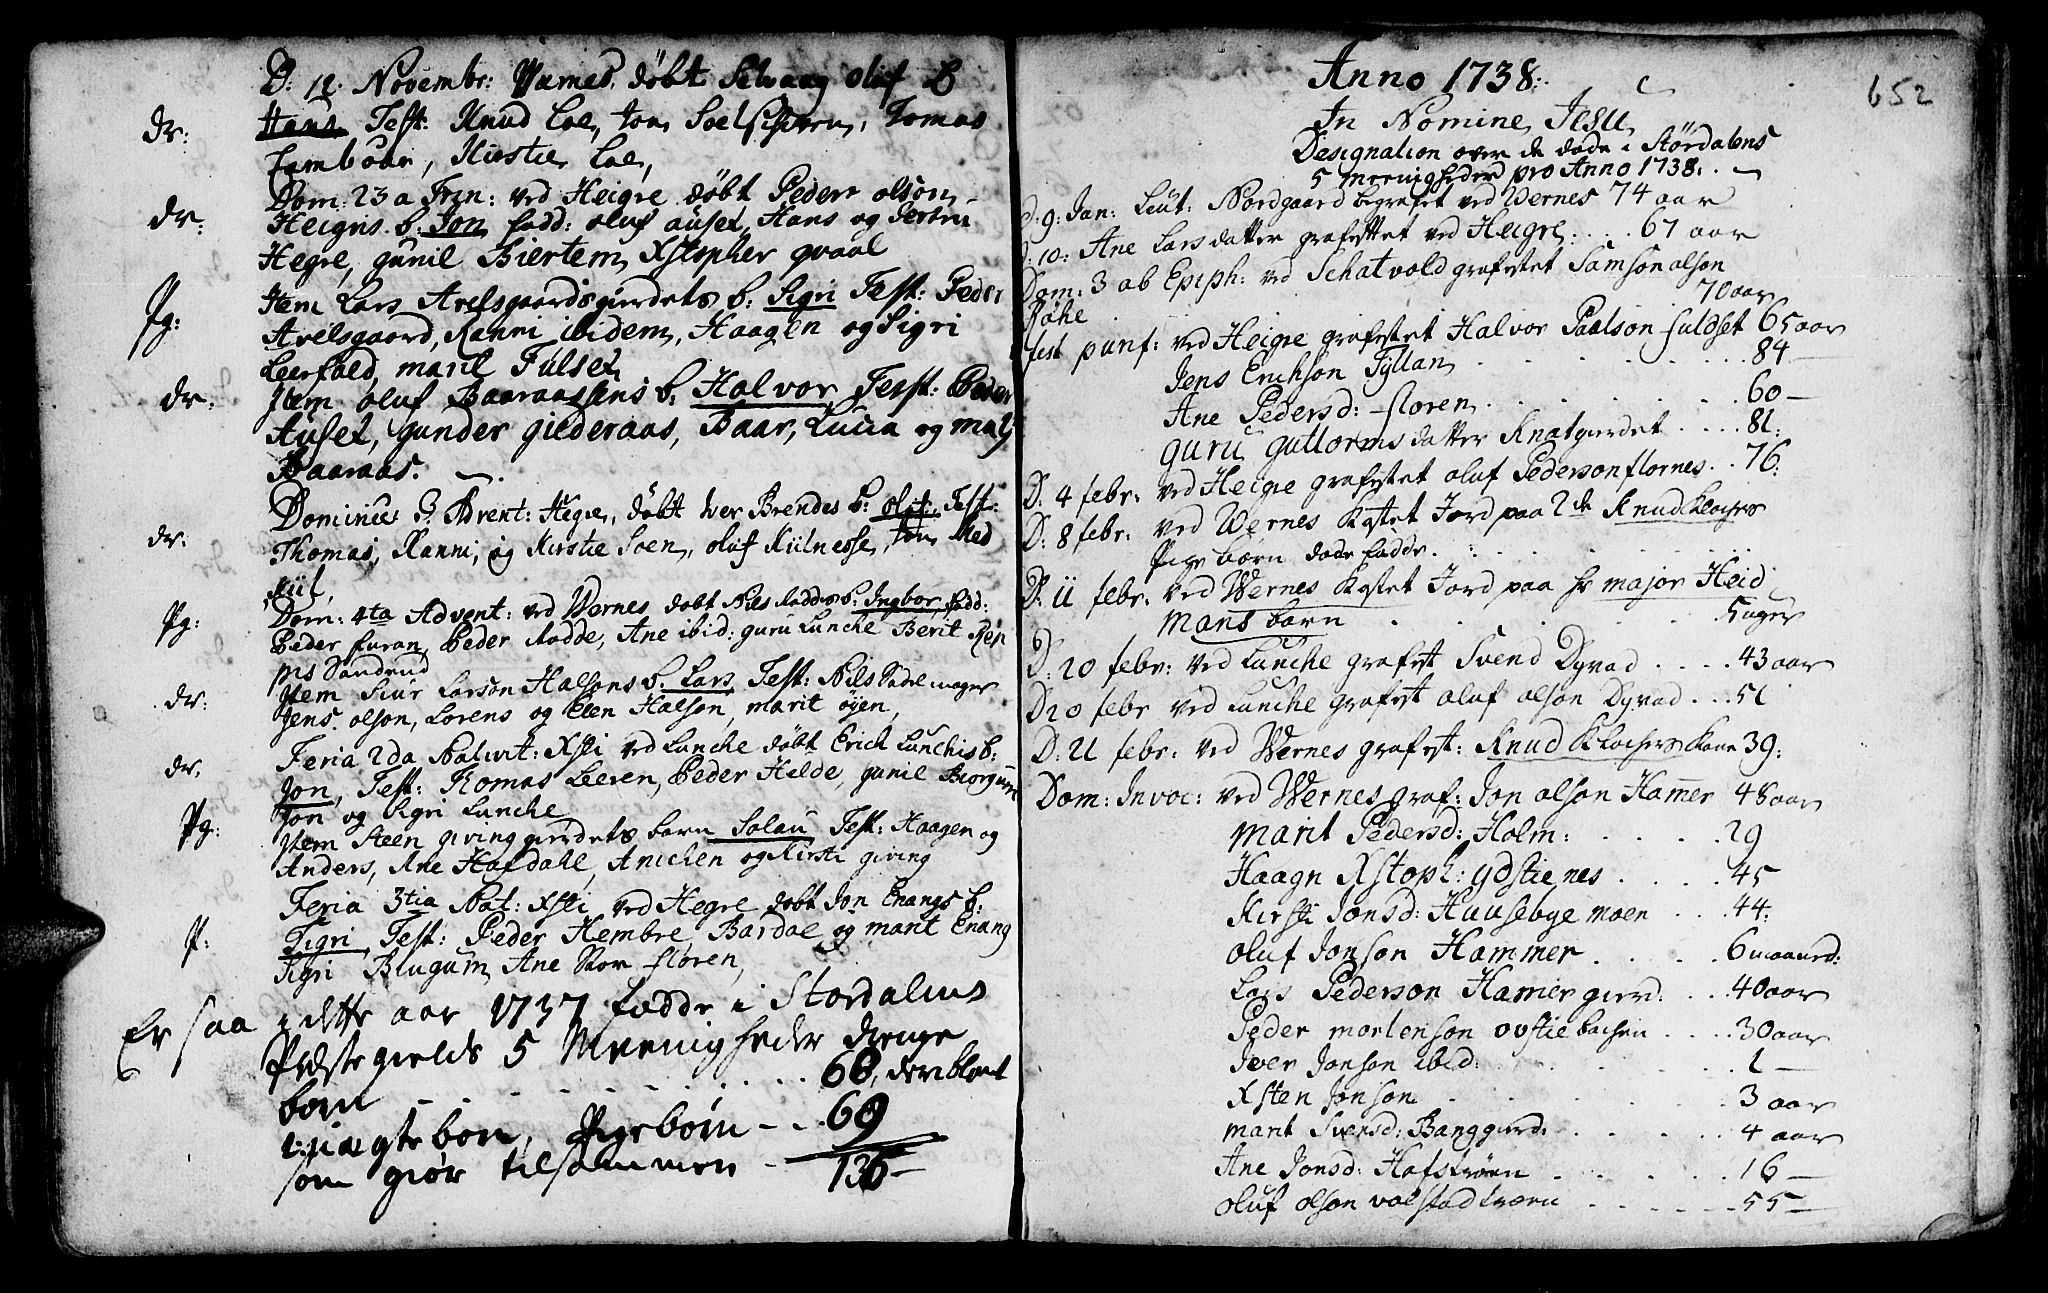 D: 12. Novembr: Værnes, døbt Selvaag Oluf B
dr: Hans Test: Knud Loe, Jon, Tomas
Kirstie Loe,
Dom: 23 a Trin: ved Heigre døbt Peder olson
dr: Heigris b. Jon fadd: oluf auset, Hans og
Hegre, gunil Biertem, Xstopher qvaal
Item Lars Avelsgaardsgierdets b. Sigri Test: Peder
Pg: Avelsgaard, Ranni ibidem, Haagen og Sigri
Leerfald, maril Fulset
dr: Item oluf Baaraasens b. Halvor, Test: Peder
Auset, gunder gilderaas, Baar, Lucia og
Baaraas.
Dominica 3 Advent: Hegre, døbt Iver Brendes b: Test:
dr: Thomas, Ranni, og Kirstie Soen, oluf Kiilnesse, Jon Med
Kiil,
Dom: 4ta Advent: ved Wernes døbt Nils Raddes b: Ingbor, fadd:
Pg: Peder furan, Peder Radde, Ane ibid: guru Lunche Berit
Sandrud
Item Siur Larson Halsons b. Lars, Test: Nils Sadelmager
dr: Jens olson, Lorens og Elen Halson, marit øyen,
Feria 2da Nativit: Xsti ved Lunche døbt Erich Lunchis b:
dr. Jon, Test: Tomas Leeren, Peder Helde, gunil
Jon og Sigri Lunche
Pg: Item Steen givinggierdets barn Salau Test: Haagen og
Anders, Ane Hafdahl, Anichen og Kirsti giving
Feria 3tia Nat: Xsti, ved Hegre døbt Jon Enangs b:
P: Sigri, Test: Peder Hembre, Bardoe og marit Enang
Sigri Bingum, Ane Stor floren,
Er saa i dette aar 1737 fødde i Stordalens
Præstegields 5 Meenigheder drenge
børn . . . . . 68, deriblant
uægte børn, Pigebørn - . . 69
som giør tilsammen - 136 -
652
Anno 1738:
In Nomine Jesu
Designation over de døde i Stördalens
5 meenigheder pro Anno 1738.
D. 9: Jan: Leut: Nordgaard begrafvet ved Wernes 74 aar
D: 10: Ane Larsdatter grafestet ved Heigre: . . . 67 aar
Dom: 3 ab Epiph: ved Schatvold grafestet Samson olson
Røhe . . . . . 70 aar
fest purif: ved Heigre grafestet Halvor Paalson fuldset 65 aar
Jens Erichson Fyllan . . . . . 84 —
Ane Pedersd: floren . . . . . 60 —
guru guttormsdatter Knatgierdet . . . . 81:
D: 4 febr: ved Heigre grafestet oluf Pederson flornes . . 76:
D: 8 febr: ved Wernes Kastet Jord paa 2de Knud Klochers
Pige børn døde fødde. . . . . .
D: 11 febr: ved Wernes Kastet Jord paa hr major Heid
mans barn . . . . . 5 uger
D: 20 febr: ved Lunche grafest Svend Dyvad . . . . 43 aar
D 20 febr ved Lunche grafest oluf olson Dyvad . . . 51
D: 21 febr: ved Wernes grafest: Knud Klochers Kone 39:
Dom: Invoc: ved Wernes graf: Jon olson Hamer 48 aar
marit Pedersd: Holm: . . . . 29
Haagn Xstoph: ydstienes . . . . 45
Kirsti Jonsd: Huusebye moen . . . 44:
oluf Jonson Hammer . . . . 6 maaned:
Lars Pederson Hamer gierd: . . . 40 aar
Peder mortenson ovstie bachen . . . . 30 aar
Iver Jonson ibid: . . . . 1 —
Xsten Jonson . . . . . 3 aar
marit Svensd: Banggierd: . . . . 4 aar
Ane Jonsd: Hafstrøen . . . . . 16 —
oluf olson valstadkværn . . . . . 55 —